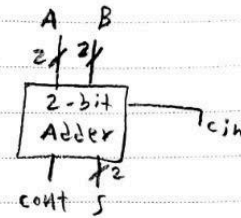 A B
2 2
2-bit
Adder
cin
2
cout S